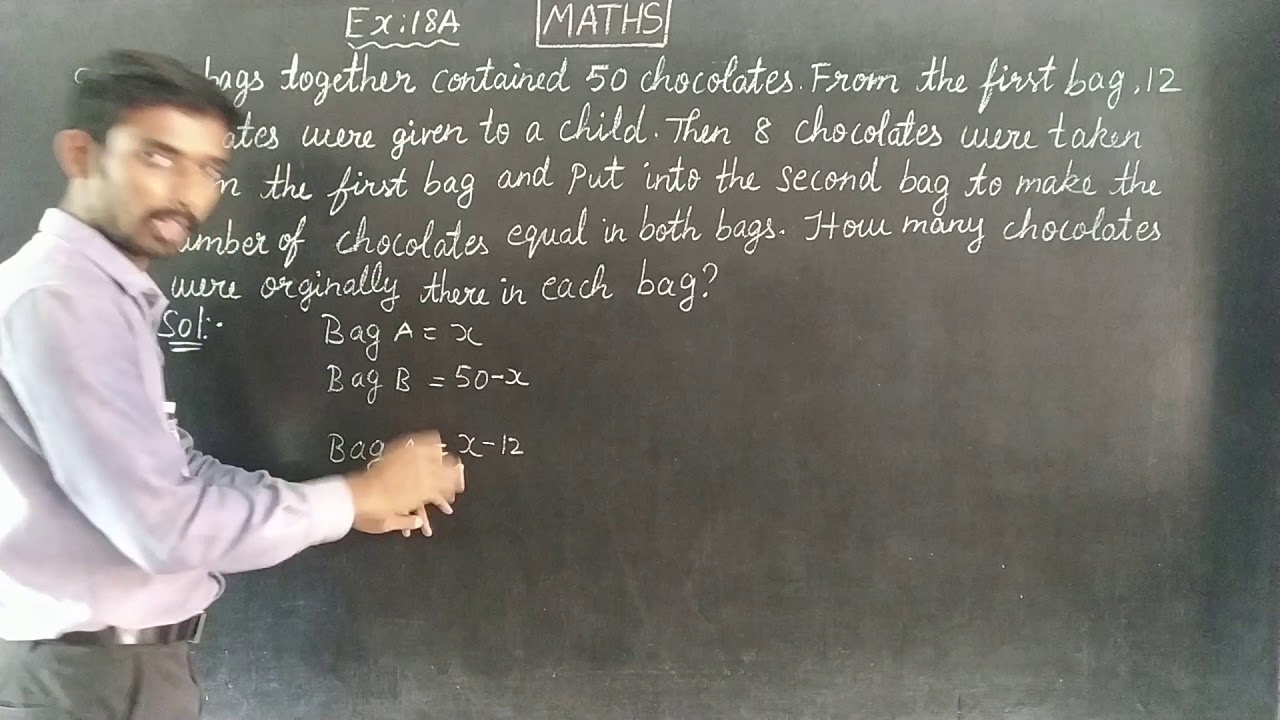 Ex:18A
MATHS
bags together contained 50 chocolates. From the first bag, 12
were given to a child. Then 8 chocolates were taken
the first bag and Put into the second bag to make the
of chocolates equal in both bags. How many chocolates
were orginally there in each bag?
Sol:-
Bag A = x
Bag B = 50-x
Bag = x-12